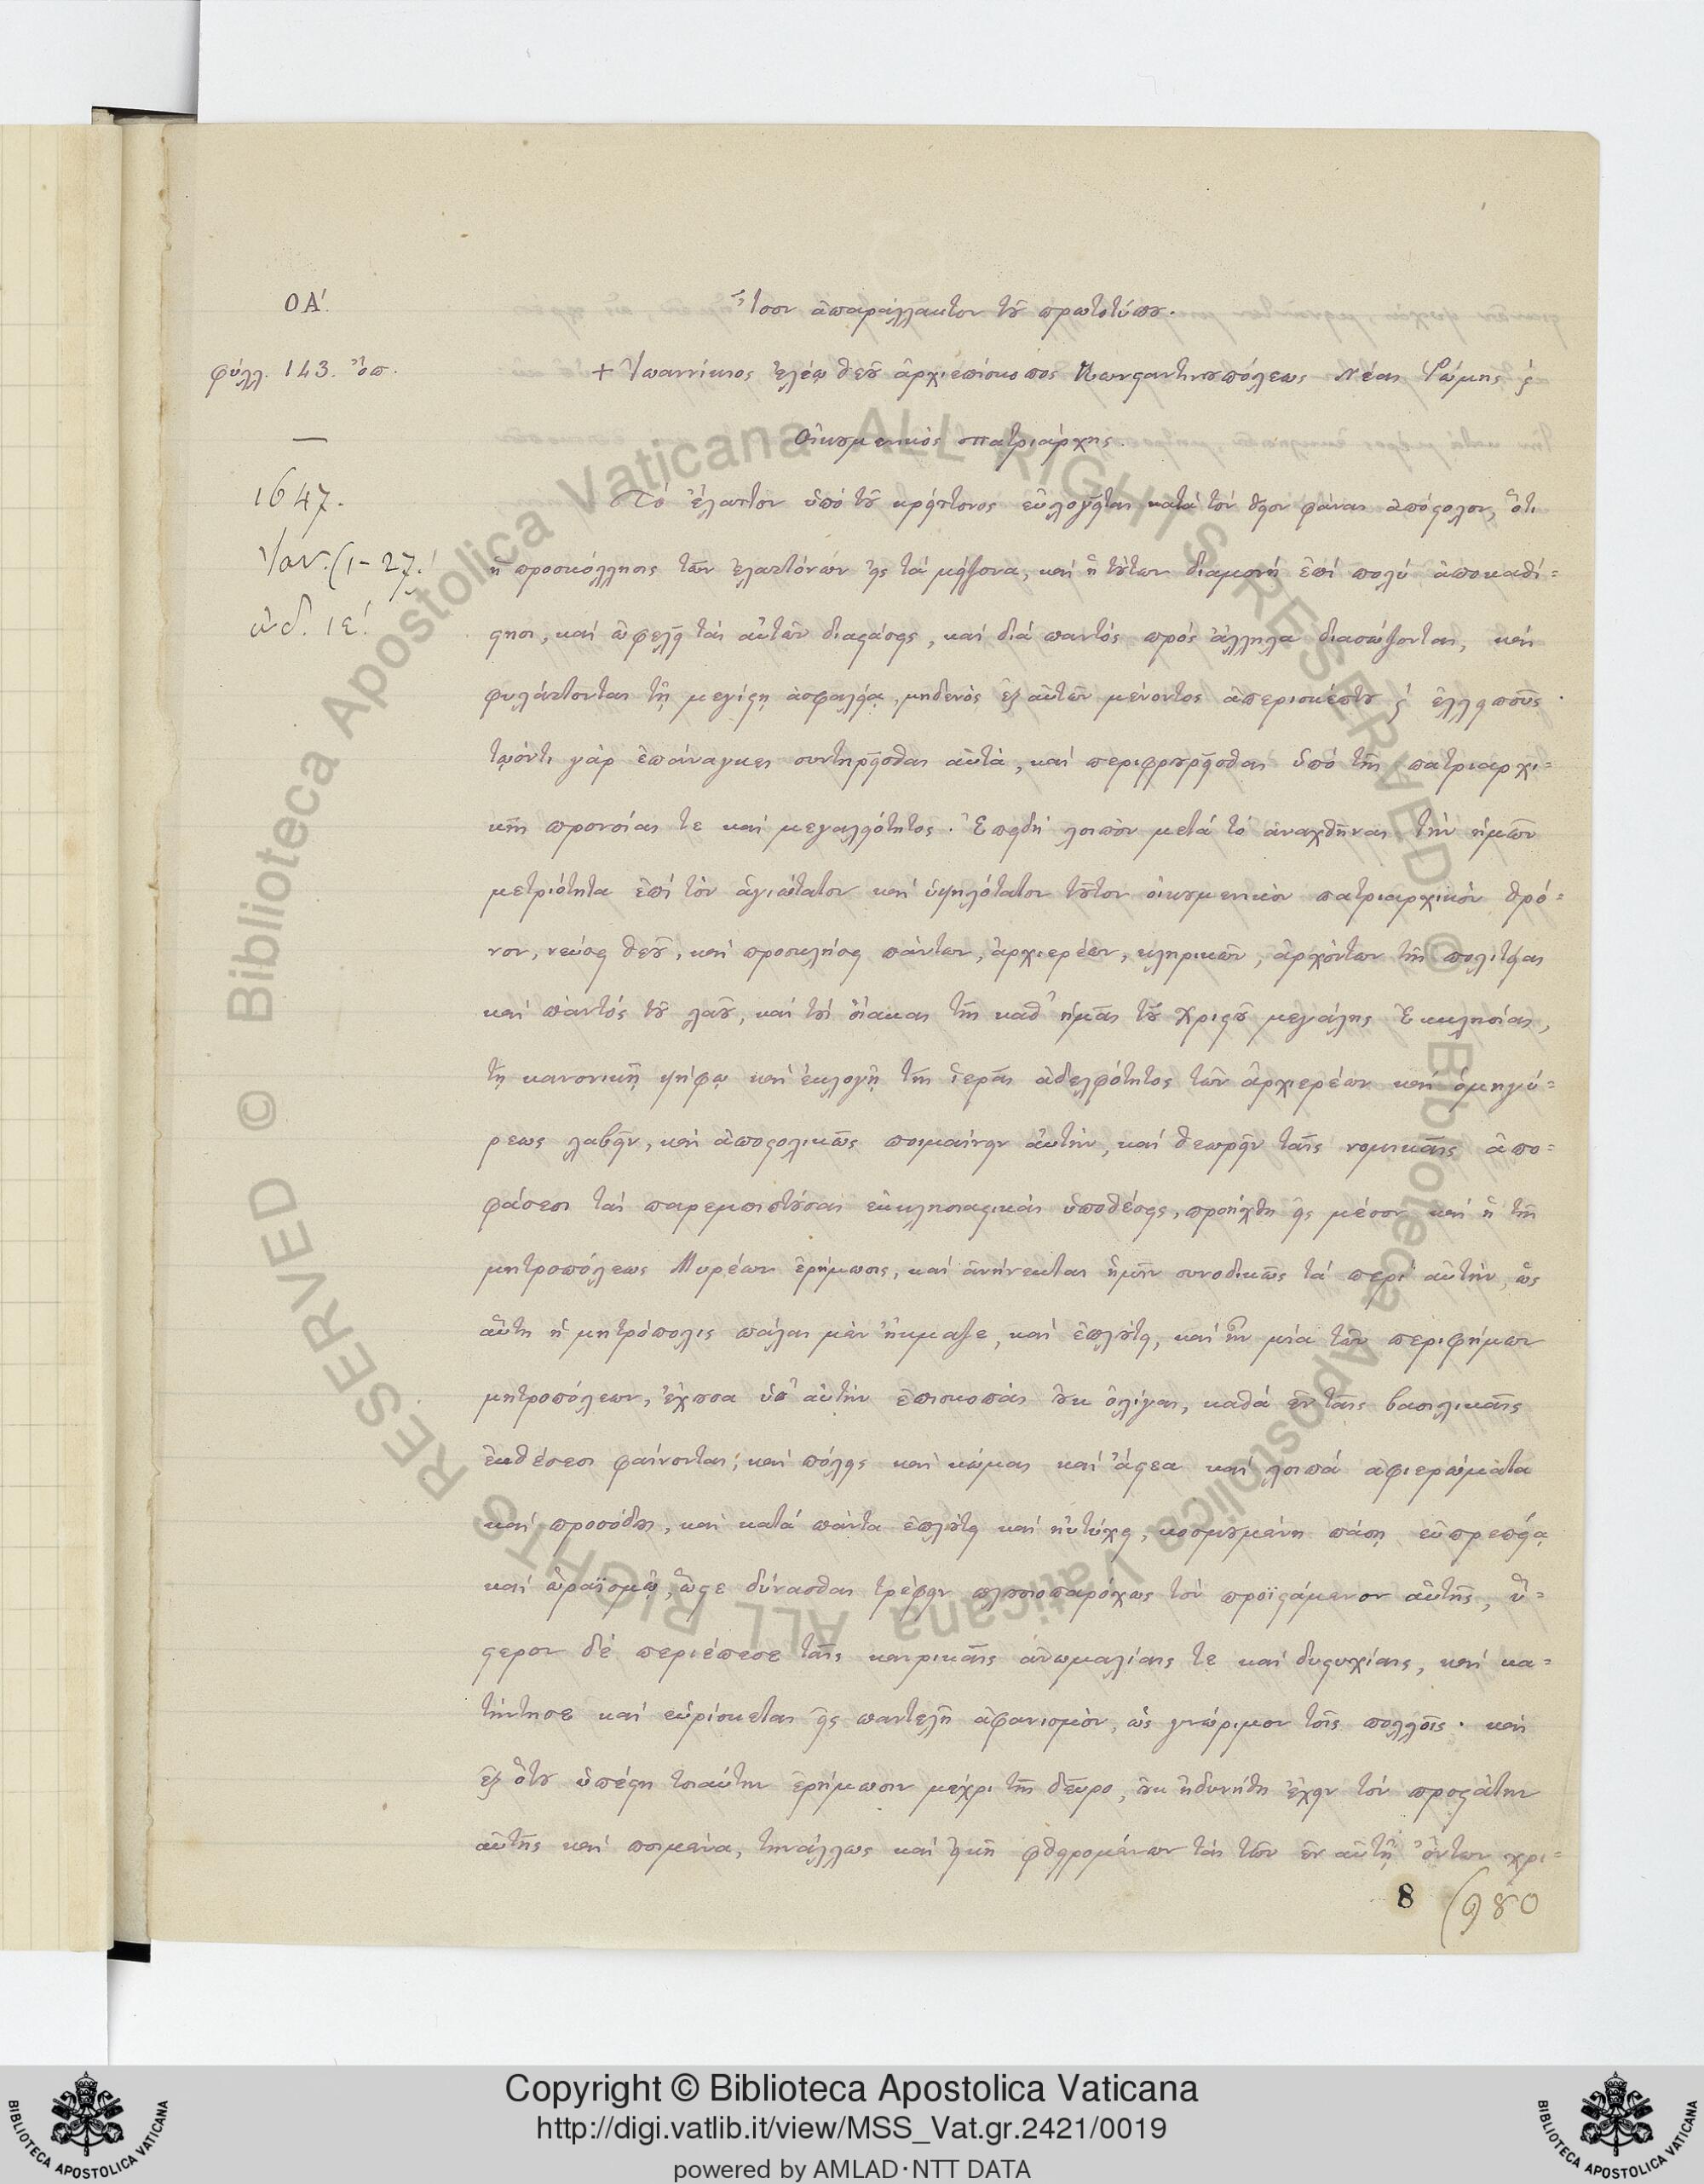 ΟΑ΄.
Ἴσον ἀπαράλλακτον τοῦ πρωτοτύπου.
φύλλ. 143. ὄπ.
+ Ἰωαννίκιος ἐλέῳ θεοῦ ἀρχιεπίσκοπος Κωνσταντινουπόλεως Νέας Ῥώμης ϗ
Οἰκουμενικὸς πατριάρχης.
1647.
Ἰαν. (1-27.)
ἰνδ. ιε΄.
Τό ἔλαττον ὑπό τοῦ κρείττονος εὐλογεῖται κατά τόν θεῖον φάναι ἀπόστολον, ὅτι
ἡ προσκόλλησις τῶν ἐλαττόνων εἰς τά μείζονα, καί ἡ τούτων διαμονή ἐπί πολύ ἀποκαθί=
στησι, καί ὠφελεῖ τάς αὐτῶν διαστάσεις, καί διά παντός πρός ἄλληλα διασώζονται, καί
φυλάττονται τῇ μεγίστῃ ἀσφαλείᾳ, μηδενὸς ἐξ αὐτῶν μένοντος ἀπερισκέπτου ϗ ἐλλειποῦς·
τῳόντι γάρ ἐπάναγκες συντηρεῖσθαι αὐτά, καί περιφρουρεῖσθαι ὑπό τῆς πατριαρχι=
κῆς προνοίας τε καί μεγαλειότητος. Ἐπειδή λοιπὸν μετά τό ἀναχθῆναι τὴν ἡμῶν
μετριότητα ἐπί τὸν ἁγιώτατον καί ὑψηλότατον τοῦτον οἰκουμενικὸν πατριαρχικὸν θρό=
νον, νεύσει θεοῦ, καί προσκλήσει πάντων, ἀρχιερέων, κληρικῶν, ἀρχόντων τῆς πολιτείας
καί παντός τοῦ λαοῦ, καί τούς οἴακας τῆς καθ' ἡμᾶς τοῦ Χριστοῦ μεγάλης Ἐκκλησίας,
τῇ κανονικῇ ψήφῳ καί ἐκλογῇ τῆς ἱερᾶς ἀδελφότητος τῶν ἀρχιερέων καί ὁμηγύ=
ρεως λαβεῖν, καί ἀποστολικῶς ποιμαίνειν αὐτήν, καί θεωρεῖν ταῖς νομικαῖς ἀπο=
φάσεσι τάς παρεμπιπτούσας ἐκκλησιαστικάς ὑποθέσεις, προήχθη εἰς μέσον καί ἡ τῆς
μητροπόλεως Μυρέων ἐρήμωσις, καί ἀνήνεκται ἡμῖν συνοδικῶς τά περί αὐτὴν, ὡς
αὕτη ἡ μητρόπολις πάλαι μὲν ἤκμαζε, καί ἐπλούτει, καί ἦν μία τῶν περιφήμων
μητροπόλεων, ἔχουσα ὑπ' αὐτὴν ἐπισκοπάς οὐκ ὀλίγας, καθά ἐν ταῖς βασιλικαῖς
ἐκθέσεσι φαίνονται, καί πόλεις καί κώμας καί ἄστεα καί λοιπά ἀφιερώματα
καί προσόδους, καί κατά πάντα ἐπλούτει καί ηὐτύχει, κοσμουμένη πάσῃ εὐπρεπείᾳ
καί ὡραϊσμῷ, ὥστε δύνασθαι τρέφειν πλουσιοπαρόχως τόν προϊστάμενον αὐτῆς, ὕ=
στερον δέ περιέπεσε ταῖς καιρικαῖς ἀνωμαλίαις τε καί δυστυχίαις, καί κα=
τήντησε καί εὑρίσκεται εἰς παντελῆ ἀφανισμὸν, ὡς γνώριμον τοῖς πολλοῖς· καί
ἐξ ὅτου ὑπέστη τοιαύτην ἐρήμωσιν μέχρι τῆς δεῦρο, οὐκ ἠδυνήθη ἔχειν τόν προστάτην
αὐτῆς καί ποιμένα, τηνάλλως καί εἰκῇ φθειρομένων τάς τῶν ἐν αὐτῇ ὄντων χρι=
8 (980
© Biblioteca Apostolica Vaticana ALL RIGHTS RESERVED © Biblioteca Apostolica Vaticana ALL RIGHTS RESERVED
Copyright © Biblioteca Apostolica Vaticana
http://digi.vatlib.it/view/MSS_Vat.gr.2421/0019
powered by AMLAD·NTT DATA
BIBLIOTECA APOSTOLICA VATICANA
BIBLIOTECA APOSTOLICA VATICANA